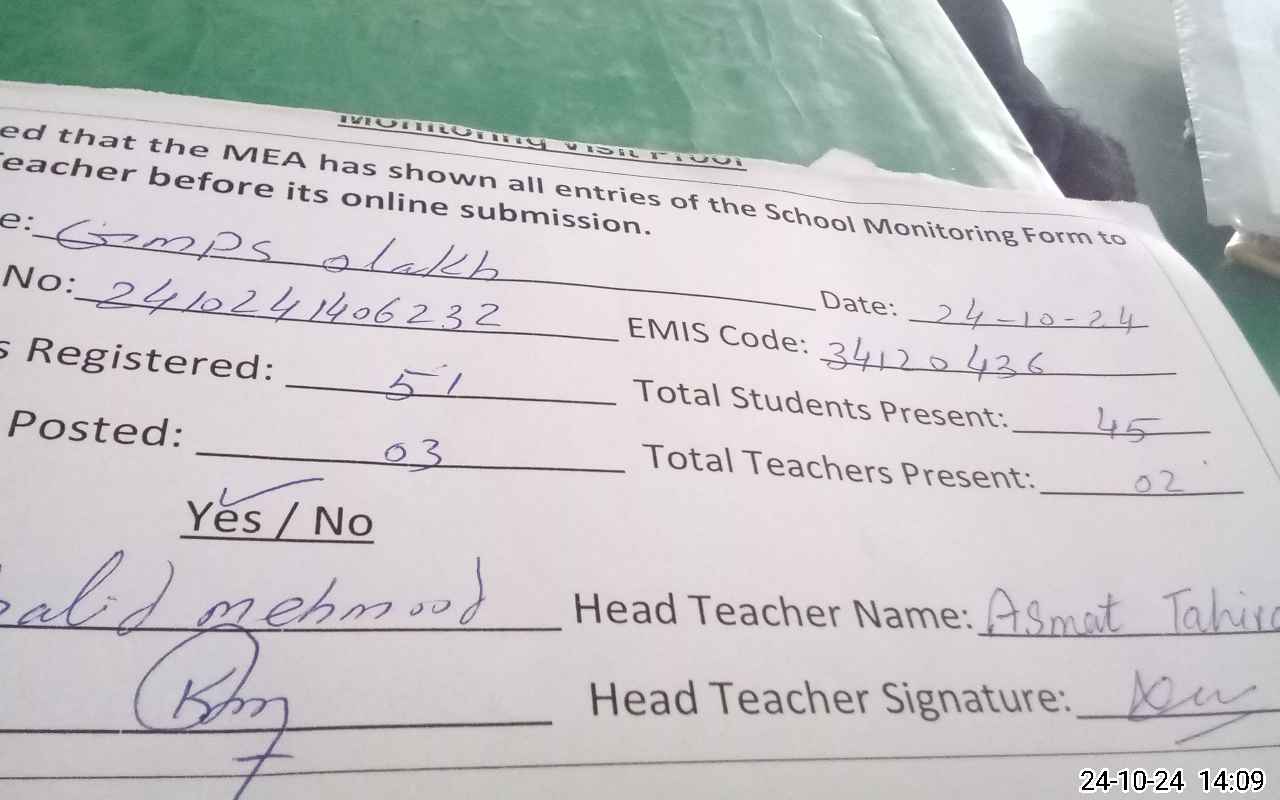 Monitoring Visit Proof
ed that the MEA has shown all entries of the School Monitoring Form to
eacher before its online submission.
e: Gmps olakh
Date: 24-10-24
No: 2410241406232
EMIS Code: 34120436
s Registered: 51
Total Students Present: 45
Posted: 03
Total Teachers Present: 02
Yes / No
alid mehmood
Head Teacher Name: Asmat Tahira
Head Teacher Signature:
24-10-24 14:09